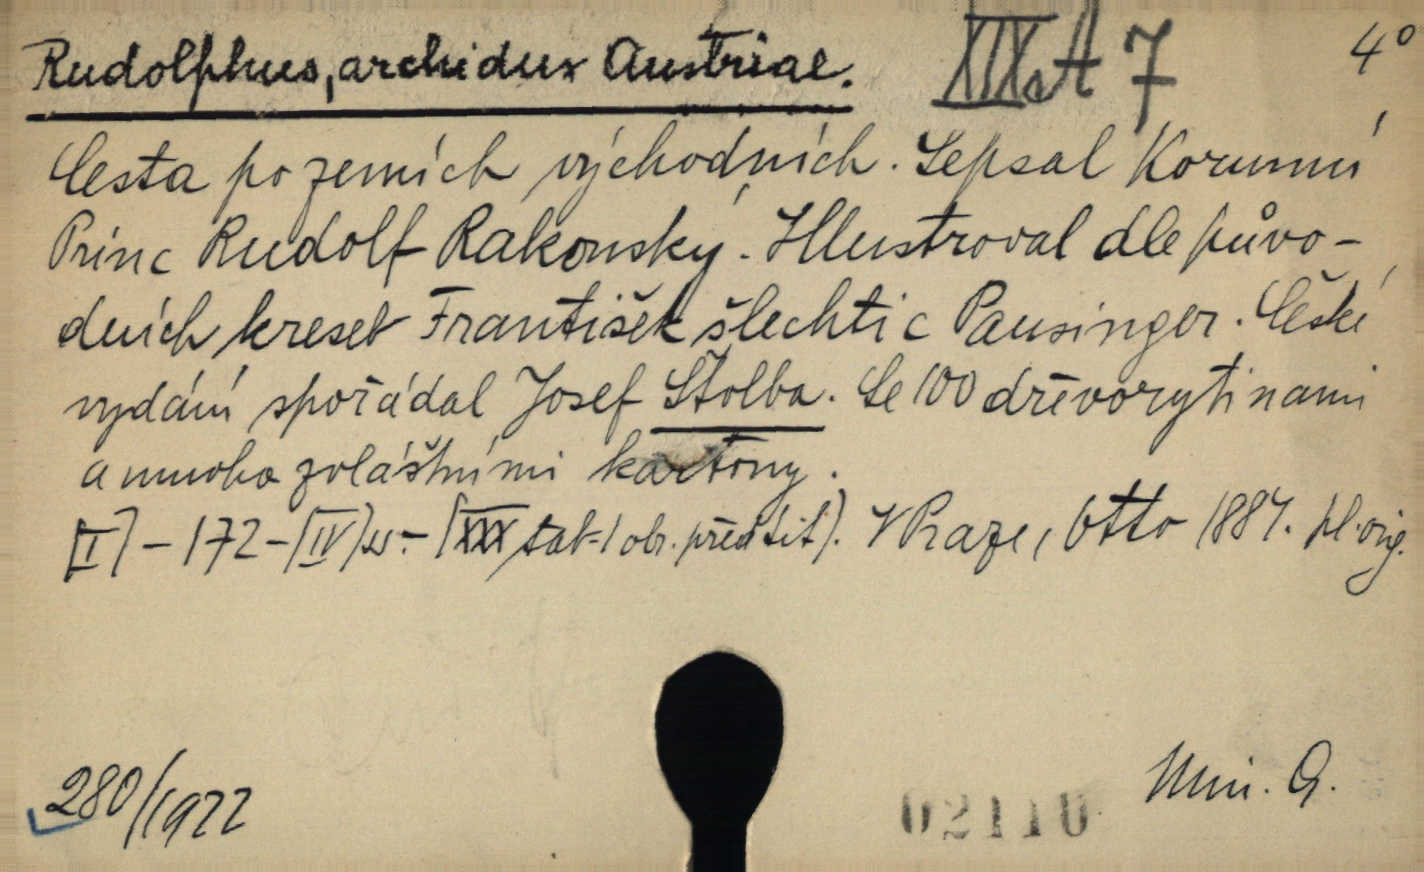 Rudolphus, archidux Austriae. XIXaA 7 4°
Cesta po zemích východních. Sepsal Korunní
Princ Rudolf Rakouský. Illustroval dle půvo-
dních kreseb František šlechtic Pausinger. České
vydání spořádal Josef Štolba. Se 100 dřevorytinami
a mnoha zvláštními kartony.
[II] - 172 - [IV] s. - [XXX tab. 1 obr. před tit.]. V Praze, Otto 1887. pl. orig.
280/1922
02110